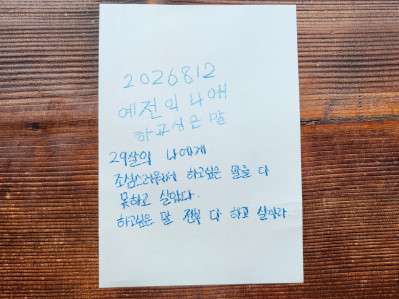 2026812
예전의 나애
하고싶은 말
29살의 나에게
조심스러워서 하고싶은 말을 다
못하고 살았다.
하고싶은 말 전부 다 하고 살아라